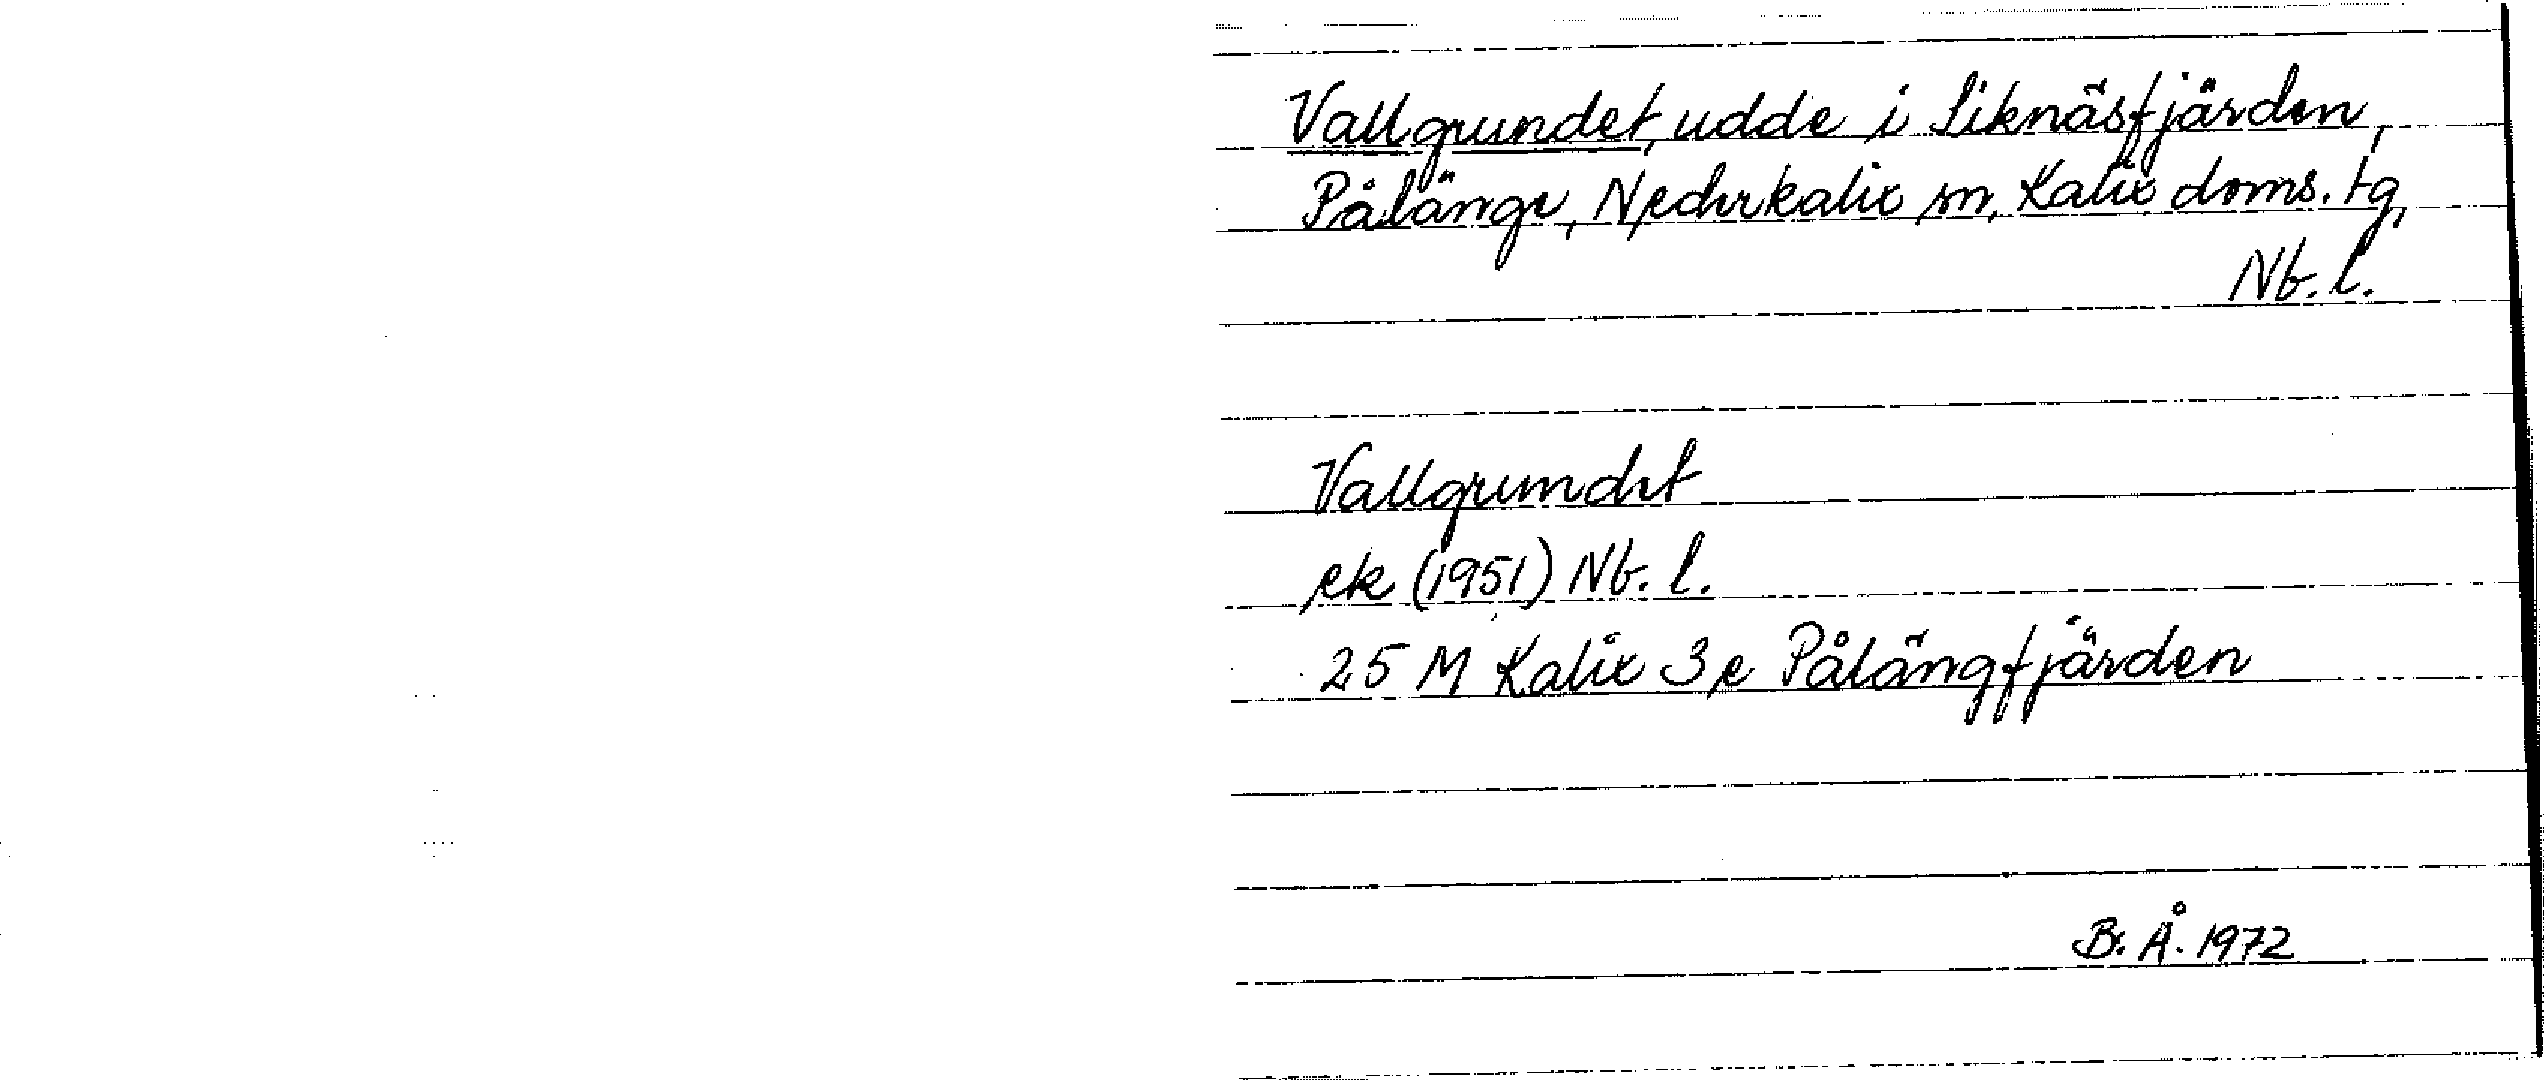 Vallgrundet, udde i Siknäsfjärden,
Pålänge, Nederkalix sn, Kalix doms. tg,
Nb. l.
Vallgrundet
ek (1951) Nb. l.
25 M Kalix 3e Pålängfjärden
B. Å. 1972